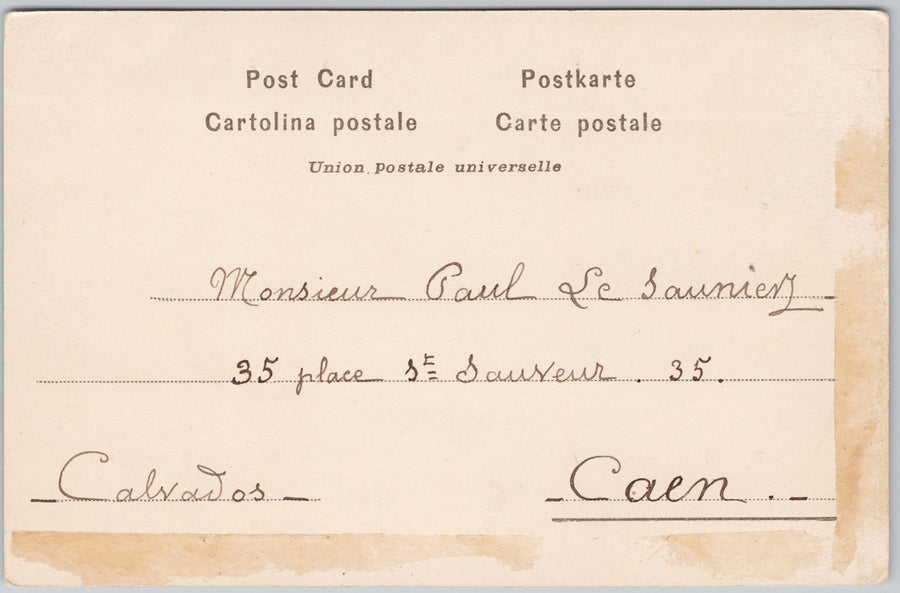 Post Card Postkarte
Cartolina postale Carte postale
Union postale universelle
Monsieur Paul Le Saunier
35 place St Sauveur . 35.
Calvados _ _ Caen . _